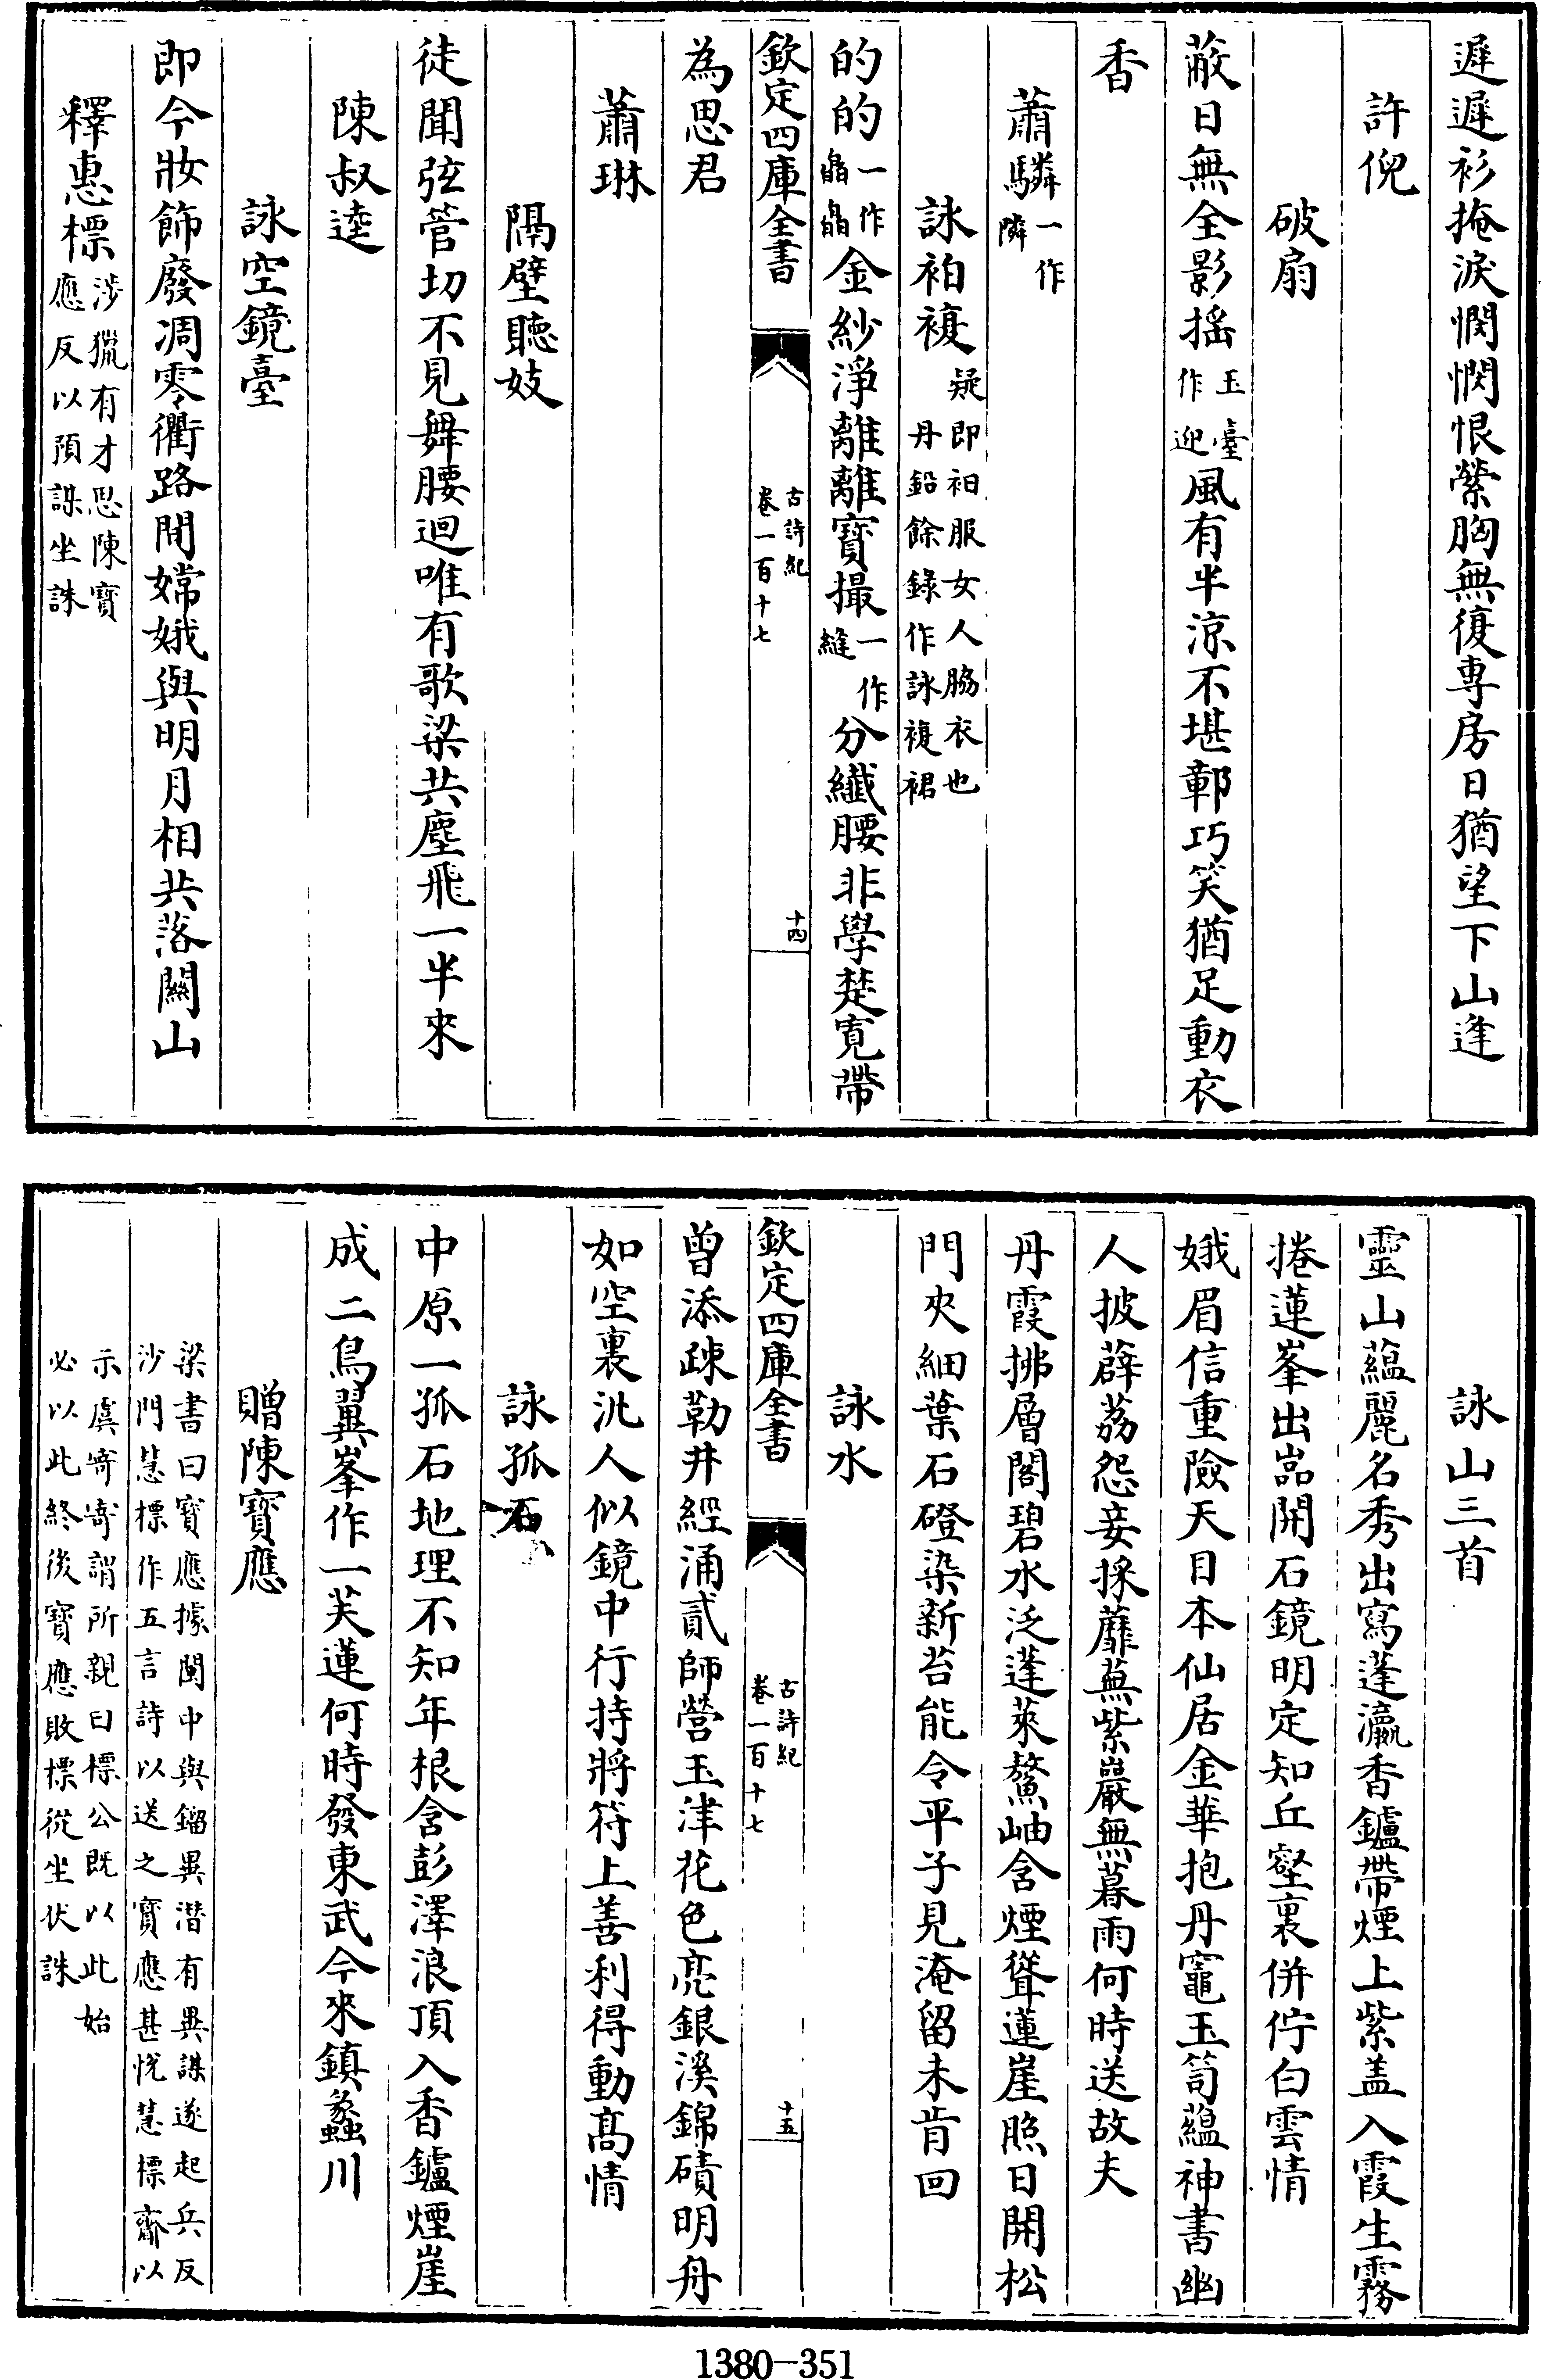 遲遲衫掩淚憫憫恨縈胸無復專房日猶望下山逢
許倪
破扇
蔽日無全影揺玉臺作迎風有半涼不堪鄣巧笑猶足動衣
香
蕭驎一作隣
詠袙複疑即袙服女人脇衣也丹鉛餘錄作詠複裙
的的一作皛皛金紗淨離離寳撮一作縫分纎腰非學楚寛帶
欽定四庫全書
古詩紀
卷一百十七
十四
為思君
蕭琳
隔壁聽妓
徒聞弦管切不見舞腰迴唯有歌梁共塵飛一半來
陳叔逵
詠空鏡臺
即今妝飾廢凋零衢路間嫦娥與明月相共落闗山
釋惠標涉獵有才思陳寳應反以預謀坐誅
詠山三首
靈山藴麗名秀出寫蓬瀛香鑪帶煙上紫盖入霞生霧
捲蓮峯出嵓開石鏡明定知丘壑裏併佇白雲情
娥眉信重險天目本仙居金華抱丹竈玉笥藴神書幽
人披薜荔怨妾採蘼蕪紫巖無暮雨何時送故夫
丹霞拂層閣碧水泛蓬萊鰲岫含煙聳蓮崖照日開松
門夾細葉石磴染新苔能令平子見淹留未肯回
詠水
欽定四庫全書
古詩紀
卷一百十七
十五
曾添疎勒井經涌貳師營玉津花色亮銀溪錦磧明舟
如空裏汎人似鏡中行持將符上善利得動髙情
詠孤石
中原一孤石地理不知年根含彭澤浪頂入香鑪煙崖
成二鳥翼峯作一芙蓮何時發東武今來鎮蠡川
贈陳寳應
梁書曰寳應據閩中與鎦異潛有異謀遂起兵反
沙門慧標作五言詩以送之寳應甚恱慧標齎以
示虞寄寄謂所親曰標公既以此始
必以此終後寳應敗標從坐伏誅
1380—351